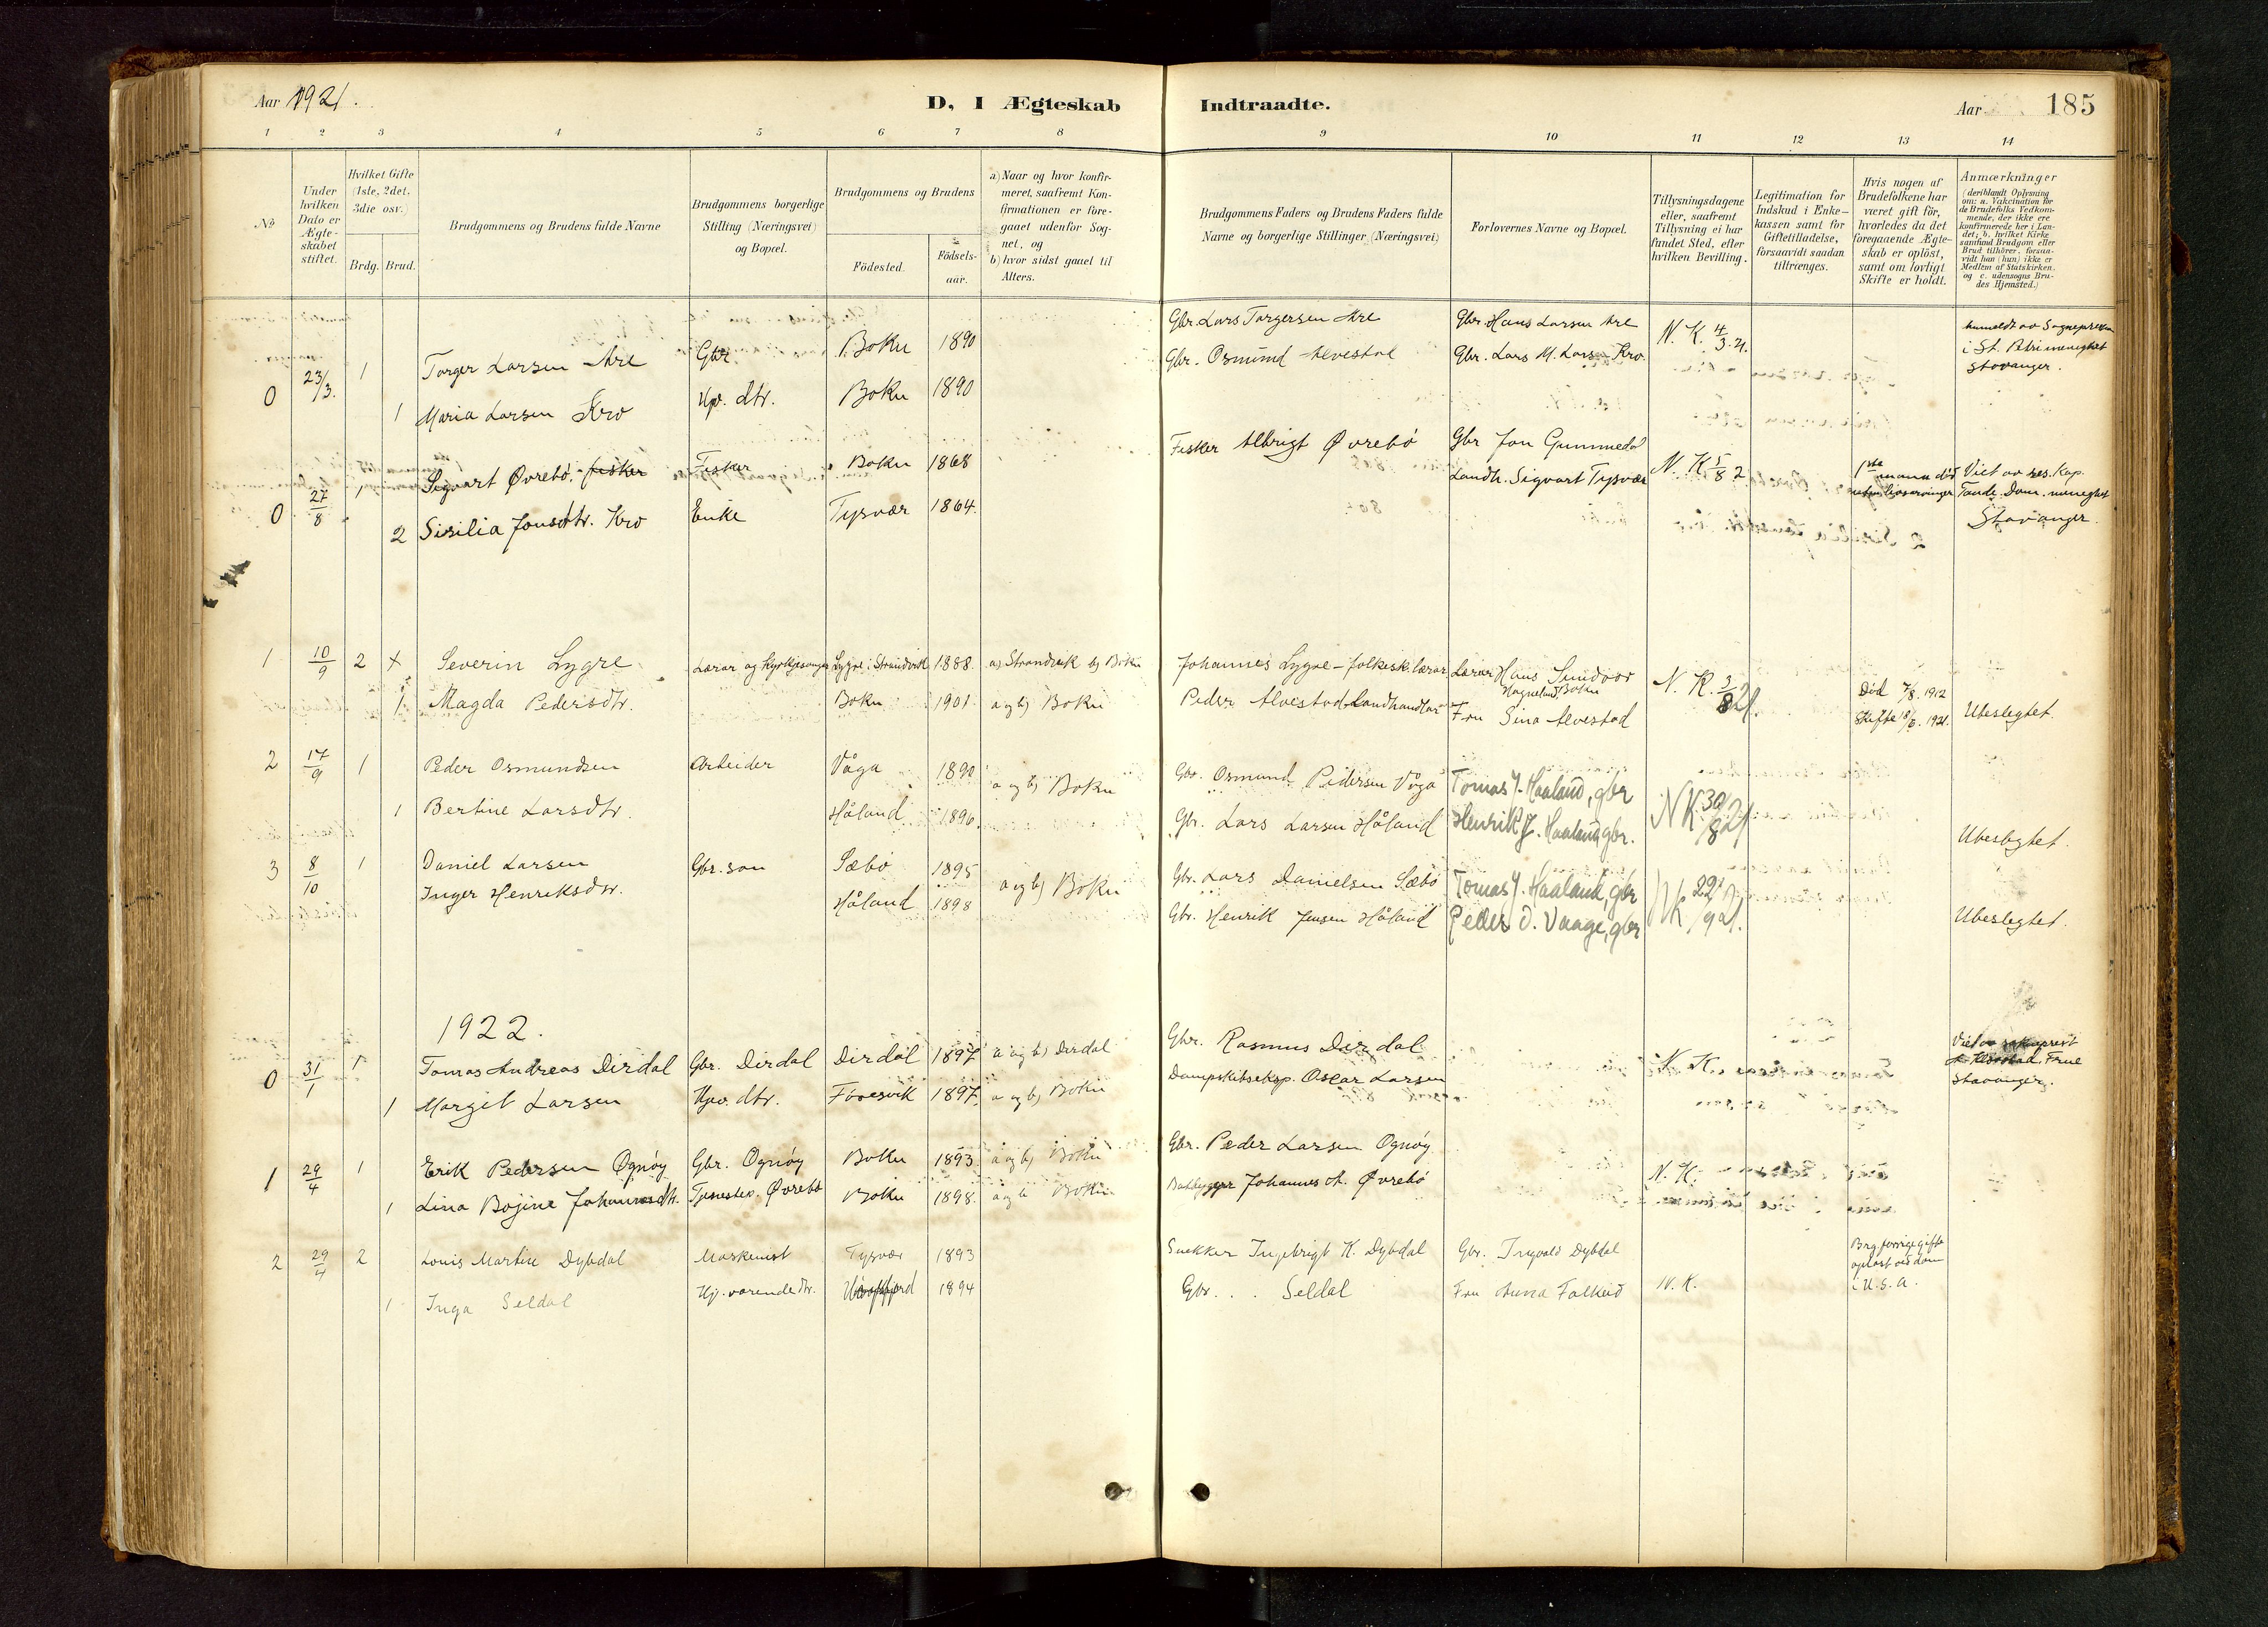 Aar 1921.
D, I Ægteskab Indtraadte.
Aar 185
1 2 3 4 5 6 7 8 9 10 11 12 13 14
No
Under hvilken Dato er Ægteskabet stiftet.
Hvilket Gifte (1ste, 2det, 3die osv.)
Brdg. Brud.
Brudgommens og Brudens fulde Navne
Brudgommens borgerlige Stilling (Næringsvei) og Bopæl.
Brudgommens og Brudens
Födested.
Födsels-aar.
a) Naar og hvor konfir-
meret, saafremt Kon-
firmationen er fore-
gaaet udenfor Sog-
net, og
b) hvor sidst gaaet til
Alters.
Brudgommens Faders og Brudens Faders fulde
Navne og borgerlige Stillinger (Næringsvei)
Forlovernes Navne og Bopæl.
Tillysningsdagene
eller, saafremt
Tillysning ei har
fundet Sted, efter
hvilken Bevilling.
Legitimation for
Indskud i Enke-
kassen samt for
Giftetilladelse,
forsaavidt saadan
tiltrænges.
Hvis nogen af
Brudefolkene har
været gift för,
hvorledes da det
foregaaende Ægte-
skab er oplöst,
samt om lovligt
Skifte er holdt.
Anmærkninger
(deriblandt Oplysning
om: a. Vakcination for
de Brudefolks Vedkom-
mende, der ikke ere
konfirmerede her i Lan-
det; b. hvilket Kirke
samfund Brudgom eller
Brud tilhörer, forsaa-
vidt han (hun) ikke er
Medlem af Statskirken,
og c. udensogns Bru-
des Hjemsted.)
0 23/3. 1 Torger Larsen Are Gbr. Bokn 1890 Gbr. Lars Torgersen Are Gbr. Hans Larsen Are N. K. 4/3.21. Anmeldt av Sognepresten
i St. Petri menighet
Stavanger.
1 Maria Larsen Kro Hj. dtr. Bokn 1890 Gbr. Osmund Alvestad Gbr. Lars M. Lars. Kro
0 27/8 1 Sigvart Øvrebø, fisker Fisker Bokn 1868 Fisker Albrigt Øvrebø Gbr Jon Gummedal N. K 5/8 2 1ste mann död Viet av res. Kap.
2 Sisilia Jonsdtr. Kro Enke Tysvær 1864. Landh. Sigvart Tysvær Dom. menighet
Stavanger.
1 10/9 2 x Severin Lygre Lærar og kyrkjesonger Lygre i Strandvik 1888. a) Strandvik b) Bokn Johannes Lygre - folkesk. lærar Lærar Hans Sundvor N. K. 3/8 21. Död 7/8. 1912
1 Magda Pedersdtr. Bokn 1901. a og b) Bokn Peder Alvestad Landhandlar Fru Sina Alvestad Skifte 18/6. 1921. Ubeslegtet.
2 17/9 1 Peder Osmundsen Arbeider Våga 1890 a og b) Bokn Gbr. Osmund Pedersen Våga Tomas J. Haaland, gbr NK. 30/8 21
1 Bertine Larsdtr. Håland 1896. Gbr. Lars Larsen Håland Henrik J. Haaland, gbr. Ubeslegtet.
3 8/10 1 Daniel Larsen Gbr. son Sæbö 1895 a og b) Bokn Gbr. Lars Danielsen Sæbö Tomas J. Haaland, gbr NK 22/9 21.
Inger Henriksdtr. Håland 1898 Gbr. Henrik Jensen Håland Peder O. Vaage, gbr Ubeslegtet.
1922.
0 31/1 1 Tomas Andreas Dirdal Gbr. Dirdal Dirdal 1897 a og b) Dirdal Gbr. Rasmus Dirdal N. K. Viet av sokneprest
Frue
Stavanger.
1 Margit Larsen Hjv. dtr. Föresvik 1897. a og b) Bokn Dampskibseksp. Oscar Larsen
1 29/4 1 Erik Pedersen Ognöy Gbr. Ognöy Bokn 1893 a og b) Bokn Gbr. Peder Larsen Ognöy N. K.
1 Lina Bojine Johannesdtr. Øvrebö Bokn 1898. a og b Bokn Baatbygger Johannes A. Øvrebö
2 29/4 2 Louis Martin Dybdal Maskinist Tysvær 1893 Snekker Ingebrigt K. Dybdal Gbr. Ingvald Dybdal Brg. forrige gifte
opløst ved dom
i U.S.A.
1 Inga Seldal Hj. værende dtr. 1894 Gbr. . . Seldal Fru Anna Falkeid N. K.